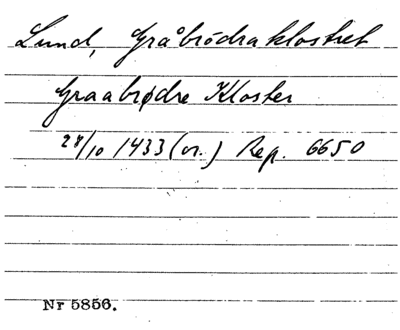 Lund, Gråbrödraklostret
Graabrødre Kloster
28/10 1433 (or.) Rep. 6650
Nr 5856.